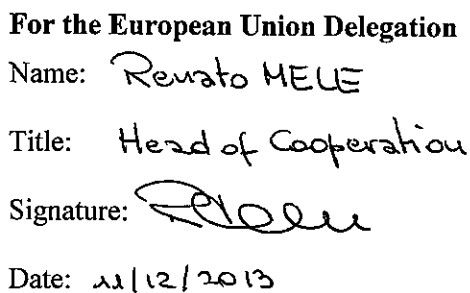 For the European Union Delegation
Name: Renato MELE
Title: Head of Cooperation
Signature:
Date: 11/12/2013